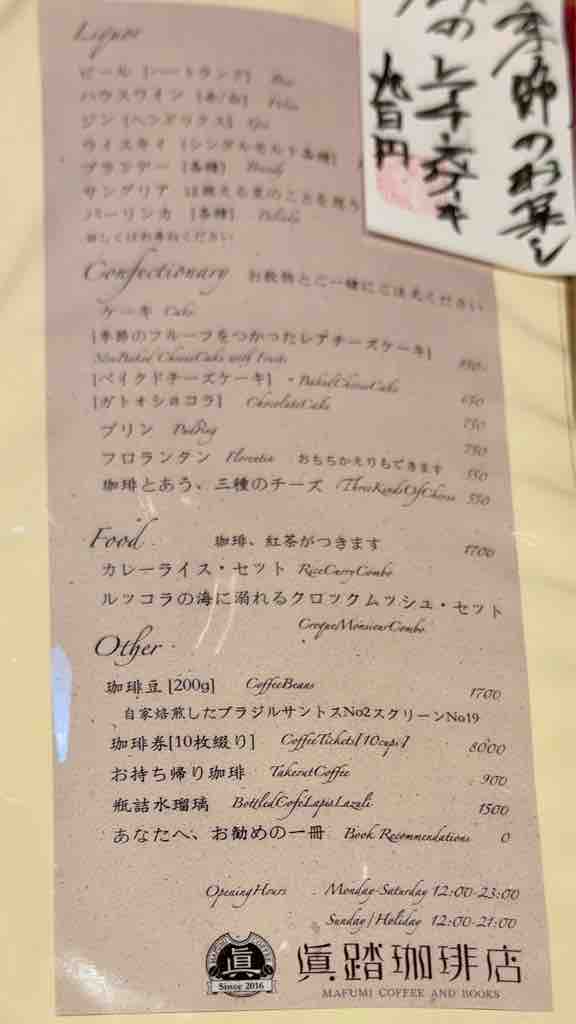 季節のお菓子
のレアチーズケーキ
九百円
Liquor
ビール [ハートランド] Beer
ハウスワイン [赤/白]
ジン [ヘンドリックス] Gin
ウイスキィ [シングルモルト各種]
ブランデー [各種] Brandy
サングリア は燃える
パーリンカ [各種] Palinka
詳しくはお尋ねください
Confectionary お飲物とご一緒にご注文ください
ケーキ Cake
[季節のフルーツをつかったレアチーズケーキ] 850
CheeseCake with Fruits
[ベイクドチーズケーキ] ・BakedCheeseCake 650
[ガトオショコラ] ChocolateCake 750
プリン Pudding 750
フロランタン Florentin おもちかえりもできます 550
珈琲とあう、三種のチーズ ThreeKindsOfCheese 550
Food 珈琲、紅茶がつきます 1700
カレーライス・セット RiceCurryCombo
ルッコラの海に溺れるクロックムッシュ・セット
CroqueMonsieurCombo
Other
珈琲豆 [200g] CoffeeBeans 1700
自家焙煎したブラジルサントスNo2スクリーンNo19
珈琲券[10枚綴り] CoffeeTickets[10cups] 8000
お持ち帰り珈琲 TakeoutCoffee 900
瓶詰水瑠璃 BottledCafeLapisLazuli 1500
あなたへ、お勧めの一冊 Book Recommendations 0
OpeningHours Monday-Saturday 12:00-23:00
Sunday/Holiday 12:00-21:00
MAFUMI COFFEE
眞
Since 2016
眞踏珈琲店
MAFUMI COFFEE AND BOOKS